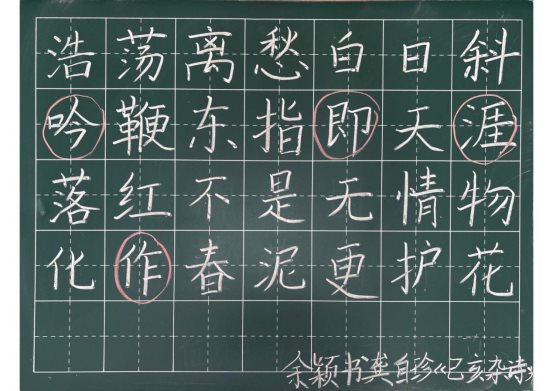 浩荡离愁白日斜
吟鞭东指即天涯
落红不是无情物
化作春泥更护花
余颖书龚自珍《己亥杂诗》